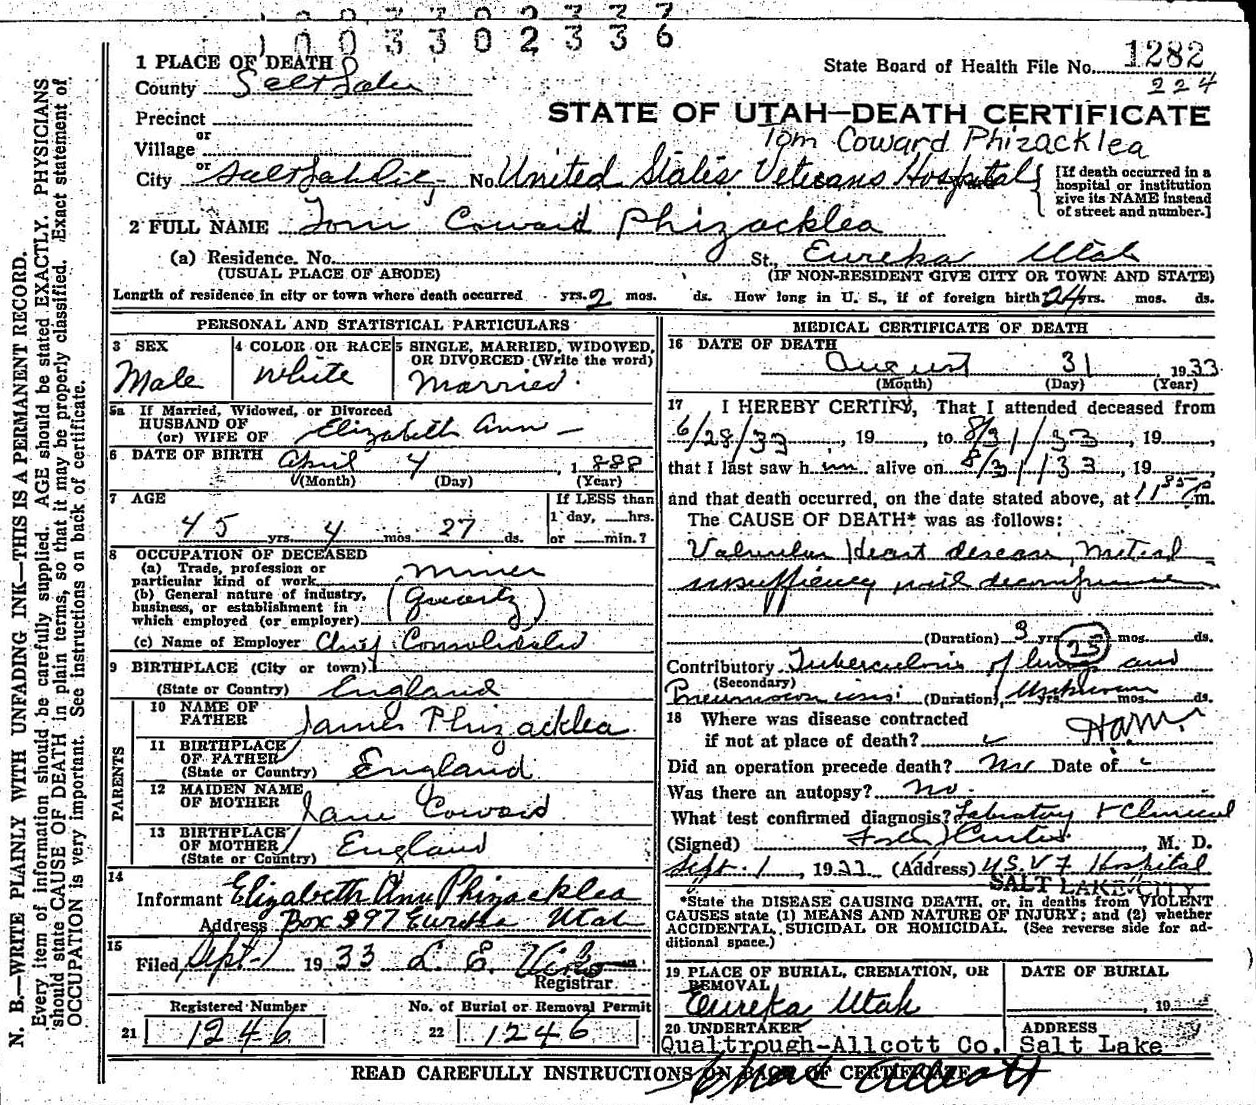 1003302336
1 PLACE OF DEATH
State Board of Health File No. 1282
County Salt Lake
224
STATE OF UTAH—DEATH CERTIFICATE
Precinct
or
Tom Coward Phizacklea
Village
or
City Salt Lake City, No. United States Veterans Hospital
[If death occurred in a hospital or institution give its NAME instead of street and number.]
2 FULL NAME Tom Coward Phizacklea
(a) Residence. No. St., Eureka Utah
(USUAL PLACE OF ABODE) (IF NON-RESIDENT GIVE CITY OR TOWN AND STATE)
Length of residence in city or town where death occurred yrs. 2 mos. ds. How long in U. S., if of foreign birth 24 yrs. mos. ds.
PERSONAL AND STATISTICAL PARTICULARS
3 SEX
Male
4 COLOR OR RACE
White
5 SINGLE, MARRIED, WIDOWED, OR DIVORCED (Write the word)
Married.
5a If Married, Widowed, or Divorced
HUSBAND OF
(or) WIFE OF Elizabeth Ann —
6 DATE OF BIRTH April 4, 1888
(Month) (Day) (Year)
7 AGE
45 yrs. 4 mos. 27 ds.
If LESS than
1 day, hrs.
or min.?
8 OCCUPATION OF DECEASED
(a) Trade, profession or
particular kind of work Miner
(b) General nature of industry,
business, or establishment in
which employed (or employer) (Quartz)
(c) Name of Employer Chief Consolidated
9 BIRTHPLACE (City or town)
(State or Country) England
PARENTS
10 NAME OF
FATHER James Phizacklea
11 BIRTHPLACE
OF FATHER
(State or Country) England
12 MAIDEN NAME
OF MOTHER Jane Coward
13 BIRTHPLACE
OF MOTHER
(State or Country) England
14
Informant Elizabeth Ann Phizacklea
Address Box 397 Eureka Utah
15
Filed Sept-1 1933 L. E.
Registrar.
Registered Number
21 1246
No. of Burial or Removal Permit
22 1246
MEDICAL CERTIFICATE OF DEATH
16 DATE OF DEATH
August 31, 1933
(Month) (Day) (Year)
17 I HEREBY CERTIFY, That I attended deceased from
6/28/33, 19, to 8/31/33, 19,
that I last saw h im alive on 8/31/33, 19,
and that death occurred, on the date stated above, at 11 85 P m.
The CAUSE OF DEATH* was as follows:
Valvular Heart disease, Mitral
insufficiency with decompensation
(Duration) 3 yrs. mos. ds.
25
Contributory Tuberculosis of lungs and
(Secondary)
Pneumoconiosis. (Duration) Unknown yrs. mos. ds.
18 Where was disease contracted
if not at place of death?
Ham.
Did an operation precede death? No Date of
Was there an autopsy? No.
What test confirmed diagnosis? Laboratory & Clinical
(Signed) Curtis, M. D.
Sept. 1, 1933 (Address) U.S.V.F Hospital
SALT LAKE CITY
*State the DISEASE CAUSING DEATH, or, in deaths from VIOLENT
CAUSES state (1) MEANS AND NATURE OF INJURY; and (2) whether
ACCIDENTAL, SUICIDAL OR HOMICIDAL. (See reverse side for ad-
ditional space.)
19 PLACE OF BURIAL, CREMATION, OR
REMOVAL
Eureka Utah
DATE OF BURIAL
, 19
20 UNDERTAKER
Qualtrough-Allcott Co.
ADDRESS
Salt Lake
READ CAREFULLY INSTRUCTIONS ON BACK OF CERTIFICATE
Chas Allcott
N. B.—WRITE PLAINLY WITH UNFADING INK—THIS IS A PERMANENT RECORD.
Every item of information should be carefully supplied. AGE should be stated EXACTLY. PHYSICIANS
should state CAUSE OF DEATH in plain terms, so that it may be properly classified. Exact statement of
OCCUPATION is very important. See instructions on back of certificate.